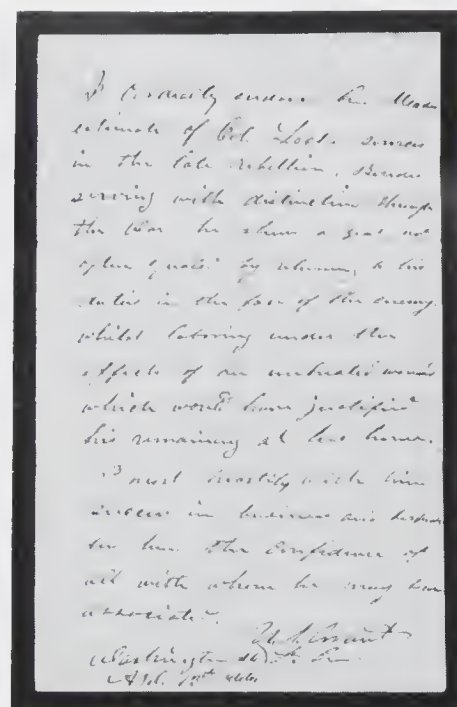 I cordially endorse Gen. Meade
estimate of Col. services
in the late rebellion. Besides
serving with distinction through
the war he shew a zeal not
often equaled by returning to his
duties in the face of the enemy
whilst laboring under the
effects of an unhealed wound
which would have justified
his remaining at his home.
I most heartily wish him
success in business and bespeak
for him the confidence of
all with whom he may be
associated.
U. S. Grant
Washington